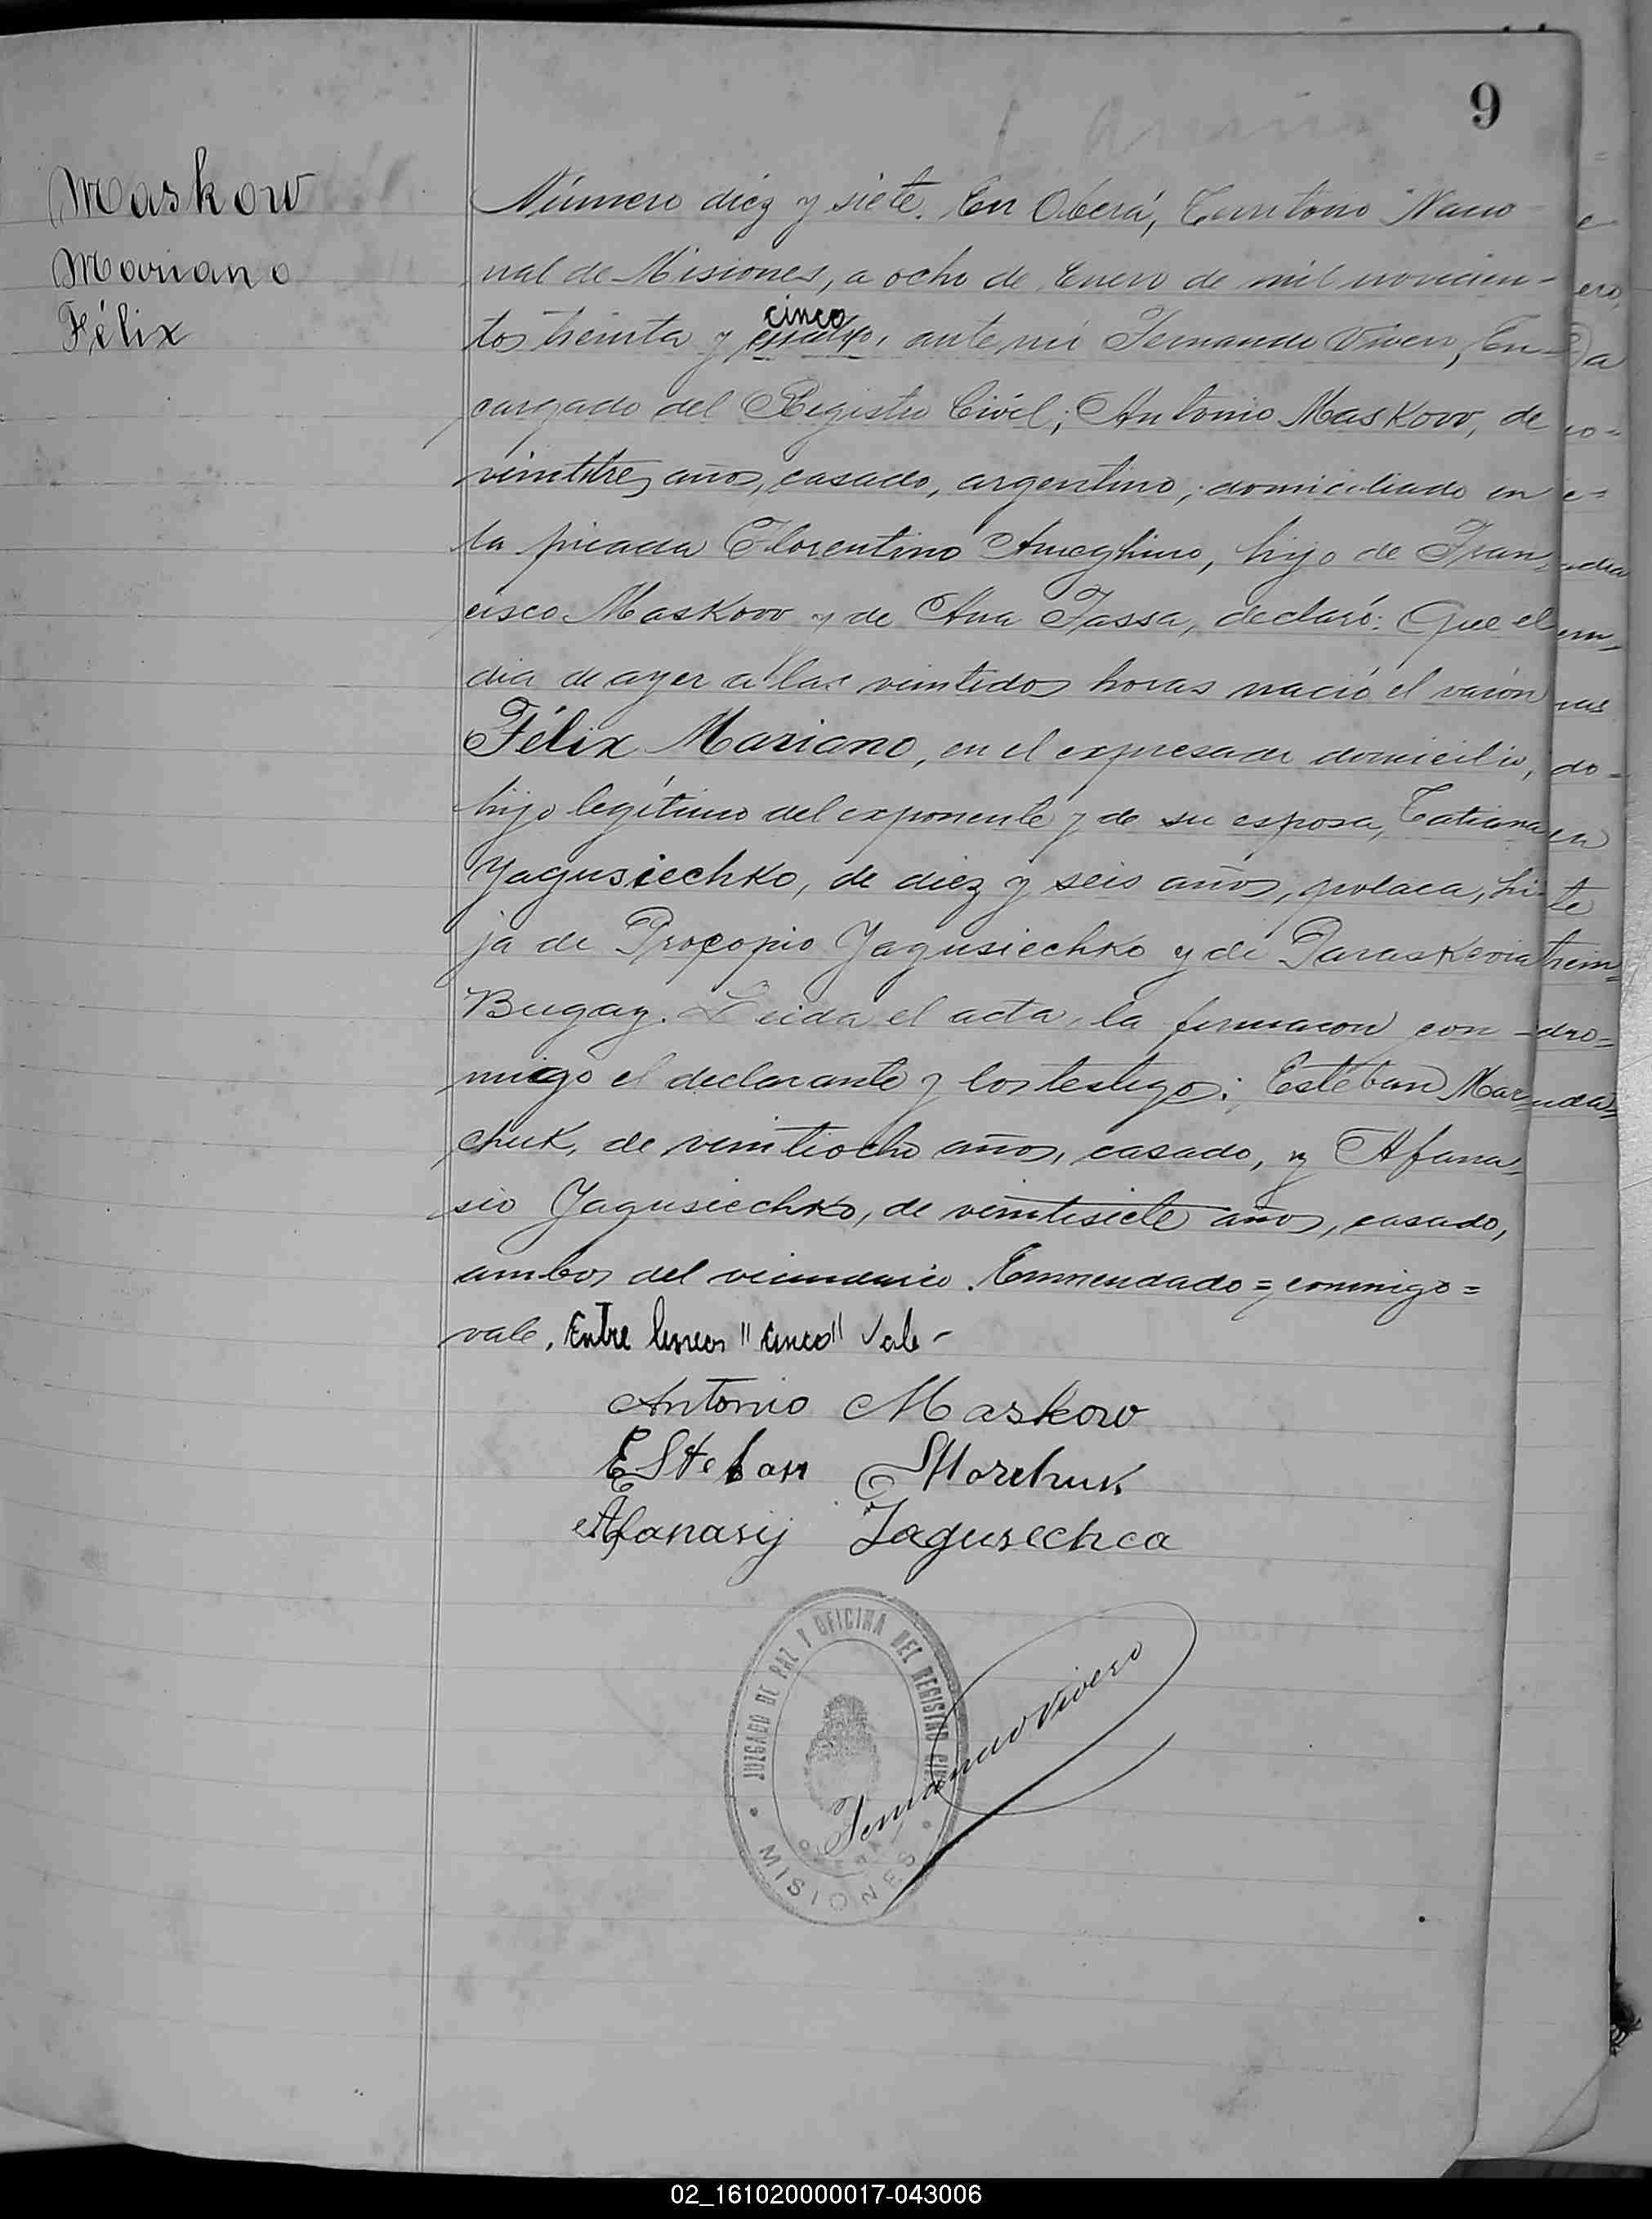 9
Maskow
Mariano
Félix
Número diez y siete. En Oberá, Territorio Nacio-
nal de Misiones, a ocho de Enero de mil novecien-
cinco
tos treinta y cuatro, ante mi Fernando Vivero, En-
cargado del Registro Civil; Antonio Maskow, de
veintitres años, casado, argentino, domiciliado en
la picada Florentino Ameghino, hijo de Fran-
cisco Maskow y de Ana Fassa, declaró: Que el
dia de ayer a las veintidos horas nació el varón
Félix Mariano, en el expresado domicilio,
hijo legítimo del exponente y de su esposa, Tatiana
Yagusiechko, de diez y seis años, polaca, hi-
ja de Procopio Yagusiechko y de Paraskevia
Bugay. Leida el acta, la firmaron con-
migo el declarante y los testigos: Estéban Mar-
chuk, de veintiocho años, casado, y Afana-
sio Yagusiechko, de veintisiete años, casado,
ambos del vecindario. Enmendado=conmigo=
vale. Entre lineas "cinco" vale-
Antonio Maskow
EsteBan Marchuk
Afanasij Jagusechca
JUZGADO DE PAZ Y OFICINA DEL REGISTRO CIVIL
OBERA
MISIONES
Fernando Vivero
02_161020000017-043006